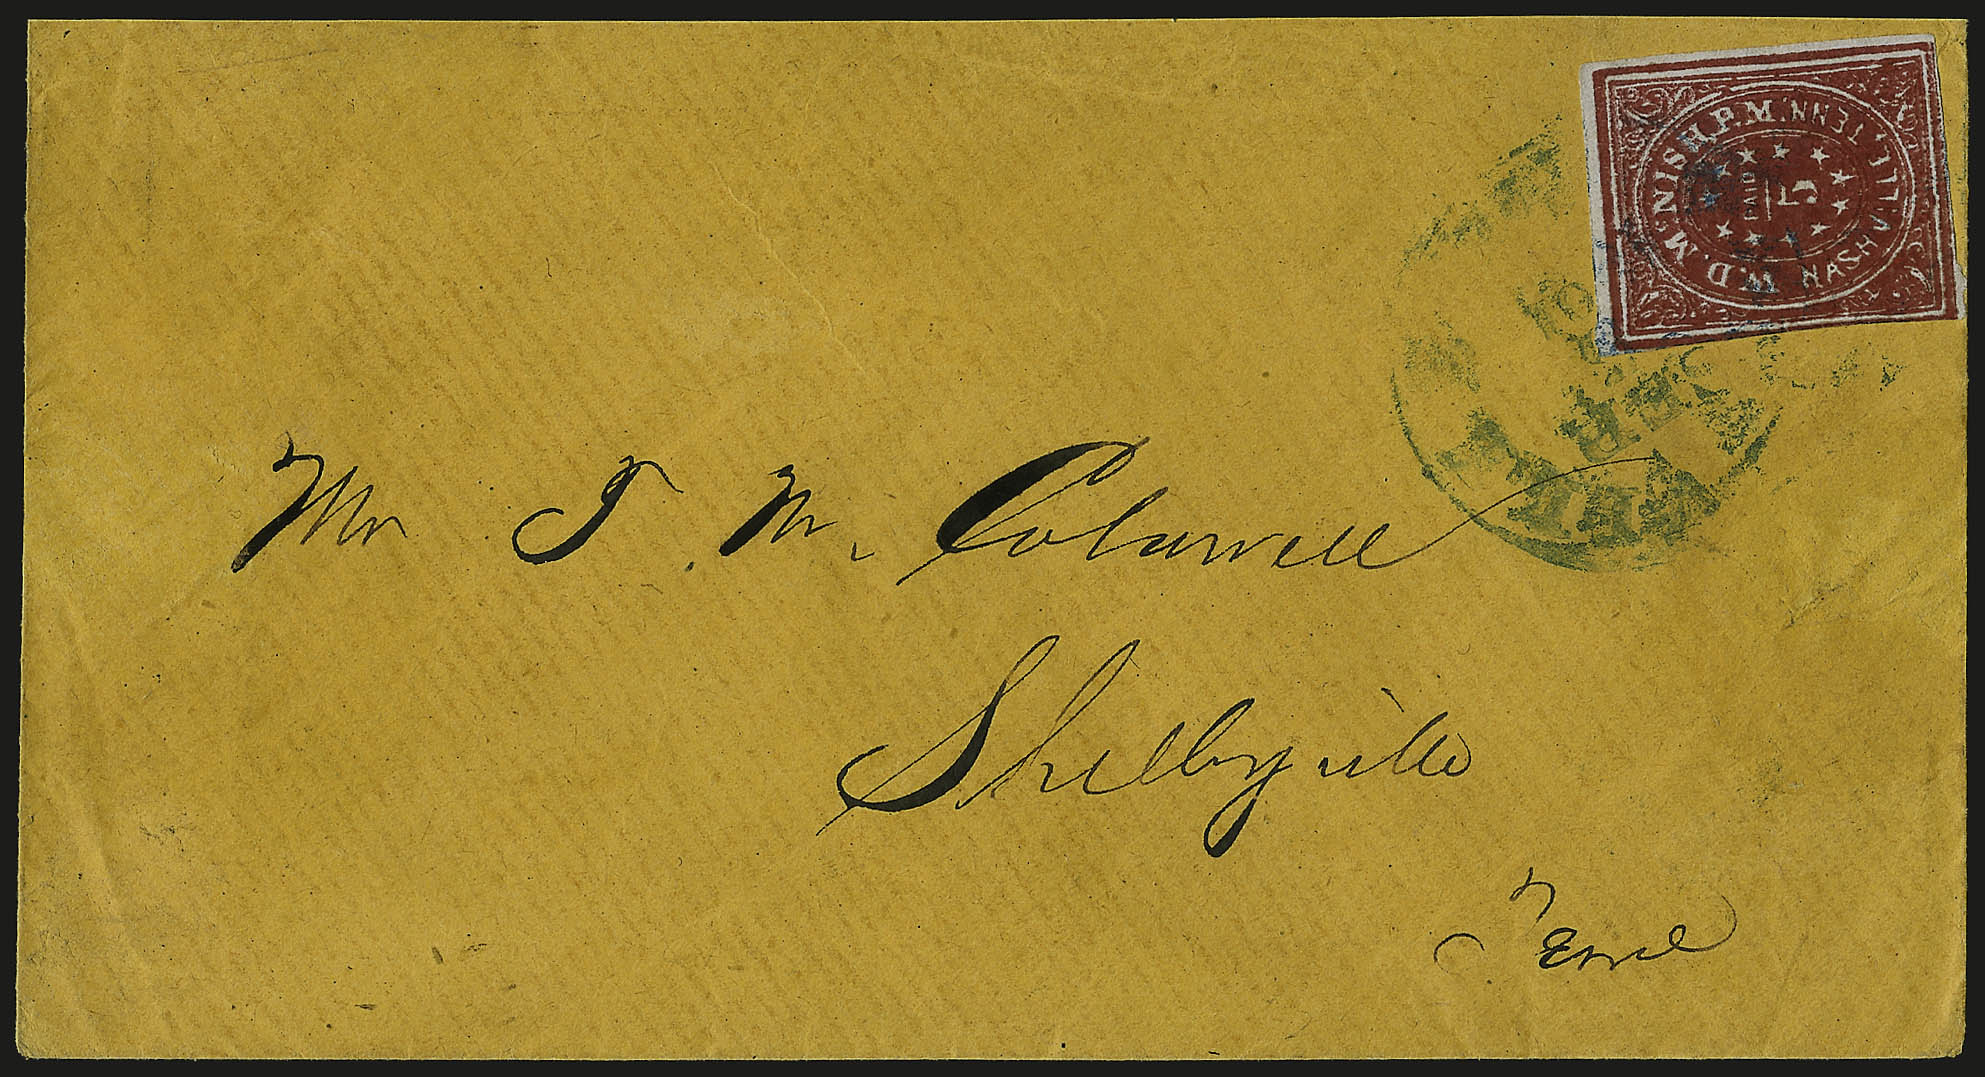 W.D. McNISH. P.M.
NASHVILLE, TENN.
PAID
5
Mr T. M. Coldwell
Shelbyville
Tenne